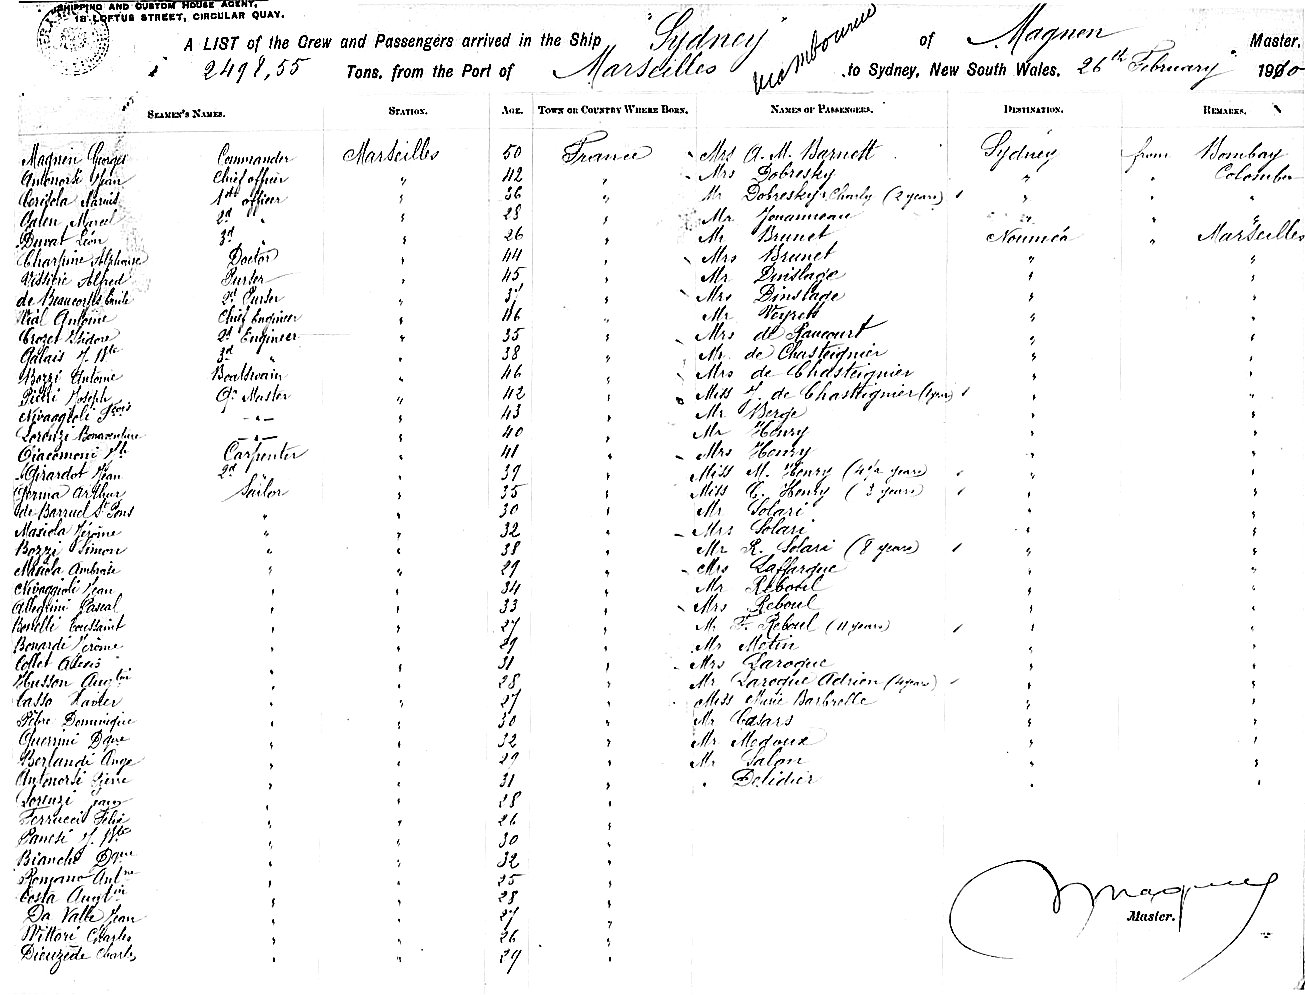 SHIPPING AND CUSTOM HOUSE AGENT,
18 LOFTUS STREET, CIRCULAR QUAY.
A LIST of the Crew and Passengers arrived in the Ship "Sydney" via Melbourne of Magnen Master,
2498,55 Tons, from the Port of Marseilles to Sydney, New South Wales, 26th February 1910
SEAMEN'S NAMES. STATION. AGE. TOWN OR COUNTRY WHERE BORN. NAMES OF PASSENGERS. DESTINATION. REMARKS.
Magnen Georges Commander Marseilles 50 France Mrs A. M. Barnett Sydney from Bombay
Antonorsi Jean Chief officer " 42 " Mrs Dobresky " " Colombo
1st officer " 36 " Mr Dobresky Charly (2 years) " " "
Galen Marcel 2d " " 28 " Mr Jouanneau " " "
Duvat Léon 3d " " 26 " Mr Brunet Nouméa " Marseilles
Charpine Alphonse Doctor " 44 " Mrs Brunet " "
Vissière Alfred Purser " 45 " Mr Dinslage " "
de Beaucorps Emile 2d Purser " " Mrs Dinslage " "
Vial Antoine Chief Engineer " 46 " Mr Veyrett " "
Crozet Isidore 2d Engineer " 35 " Mrs de Raucourt " "
Galais J. Bte 3d " " 38 " Mr. de Chasteignier " "
Bozzi Antoine Boatswain " 46 " Mrs de Chasteignier " "
Pietri Joseph Qr Master " 42 " Miss J. de Chasteignier (1 year) " "
Nivaggioli Fçois -"- " 43 " Mr Berge " "
Lorenzi Bonaventure -"- " 40 " Mr Henry " "
Giacomoni Carpenter " 41 " Mrs Henry " "
Girardot Jean 2d " 39 " Miss M. Henry (4½ years) " "
Germa Arthur Sailor " 35 " Miss C. Henry (3 years) " "
de Barruel St Pons " " 30 " Mr Solari " "
Masiola Jérôme " " 32 " Mrs Solari " "
Bozzi Simon " " 38 " Mr R. Solari (8 years) " "
Ambroise " " 29 " Mrs Laffargue " "
Nivaggioli Jean " " 34 " Mr Reboul " "
Allegrini Pascal " " 33 " Mrs Reboul " "
Bonelli Toussaint " " 27 " Mr F. Reboul (11 years) " "
Bonardi Jérôme " " 29 " Mr Metin " "
Collet Alexis " " 31 " Mrs Laroque " "
Husson Augtin " " 28 " Mr Laroque Adrien (4 years) " "
Casso Xavier " " 27 " Miss Marie Barbrelle " "
Pèbre Dominique " " 30 " Mr Casars " "
Guerrini Dque " " 32 " Mr Medoux " "
Berlandi Ange " " 29 " Mr Salon " "
Antonorsi Pierre " " 31 " " Delidier " "
Lorenzi Jean " " 28 "
Ferrucci Félix " " 26 "
Panesi J. Bte " " 30 "
Bianchi Dque " " 32 "
Romano Antne " " 25 "
Costa Augtin " " 28 "
Da Valle Jean " " 27 "
Vittori Charles " " 26 "
Dieuzède Charles " " 29 "
Magnen
Master.